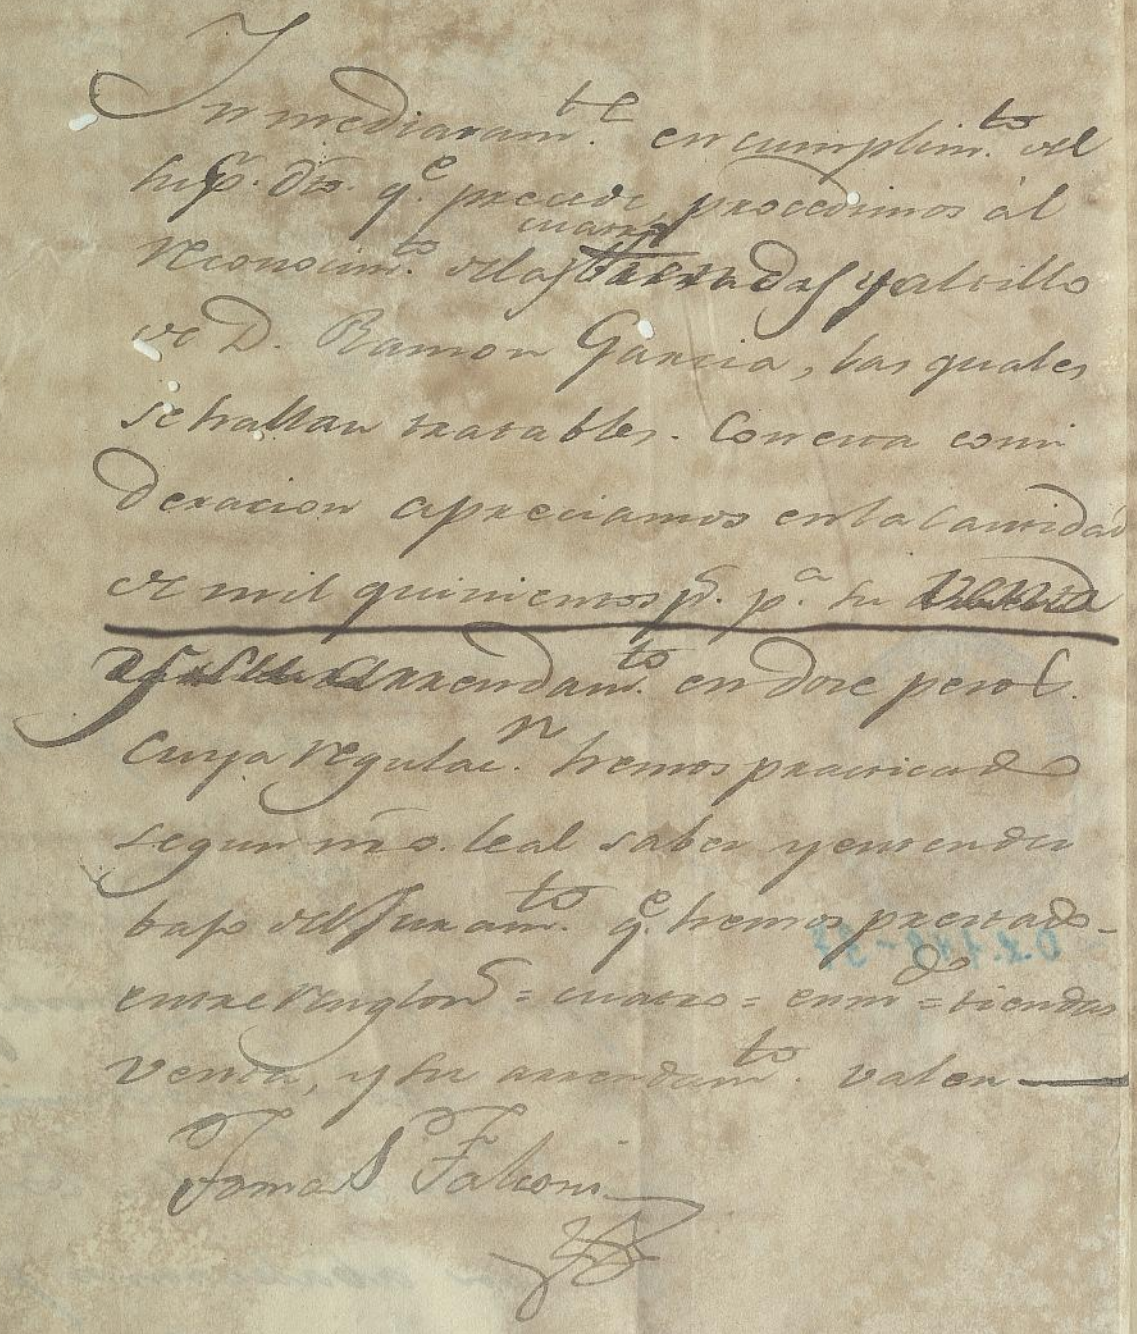 Inmediatam.te en cumplim.to del
sup.r dto. q.e precede, procedimos al
cuatro
reconocim.to delas tiendas y altillo
de D. Ramon Garcia, las quales
se hallan tratables. Con esta consi
deracion apreciamos en la Cantidad
de mil quinientos p.s p.a su venta
y su arrendam.to en dose pesos.
Cuya regulac.n hemos practicado
segun nro. leal saber y entender
bajo del Juram.to q.e hemos prestado-
entre renglon.s = cuatro = enm.do = tiendas
venta, y su arrendam.to. valen—
Tomas Falconi